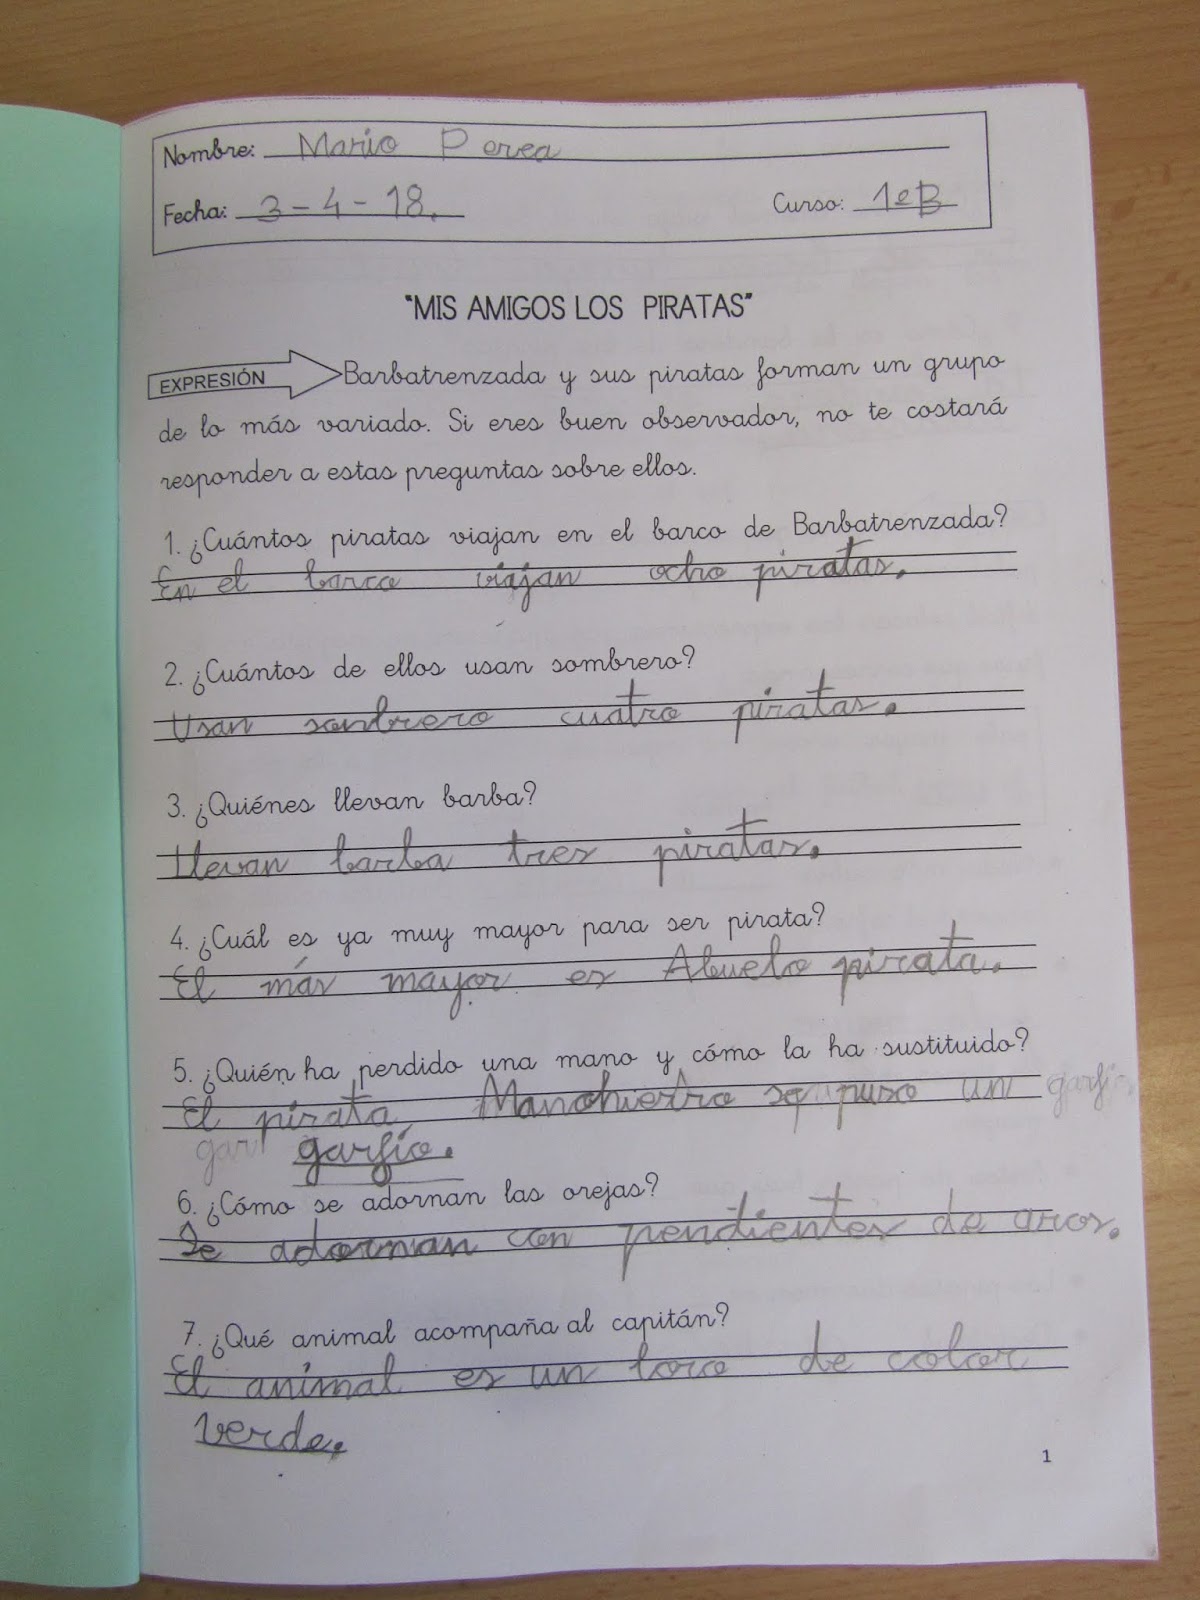 Nombre: Mario Perea
Fecha: 3-4-18. Curso: 1ºB
"MIS AMIGOS LOS PIRATAS"
EXPRESIÓN Barbatrenzada y sus piratas forman un grupo
de lo más variado. Si eres buen observador, no te costará
responder a estas preguntas sobre ellos.
1. ¿Cuántos piratas viajan en el barco de Barbatrenzada?
En el barco viajan ocho piratas.
2. ¿Cuántos de ellos usan sombrero?
Usan sonbrero cuatro piratas.
3. ¿Quiénes llevan barba?
Llevan barba tres piratas.
4. ¿Cuál es ya muy mayor para ser pirata?
El más mayor es Abuelo pirata.
5. ¿Quién ha perdido una mano y cómo la ha sustituido?
El pirata Manohierro se puso un garfio
gar garfio.
6. ¿Cómo se adornan las orejas?
Se adornan con pendientes de aros.
7. ¿Qué animal acompaña al capitán?
El animal es un loro de color
verde.
1